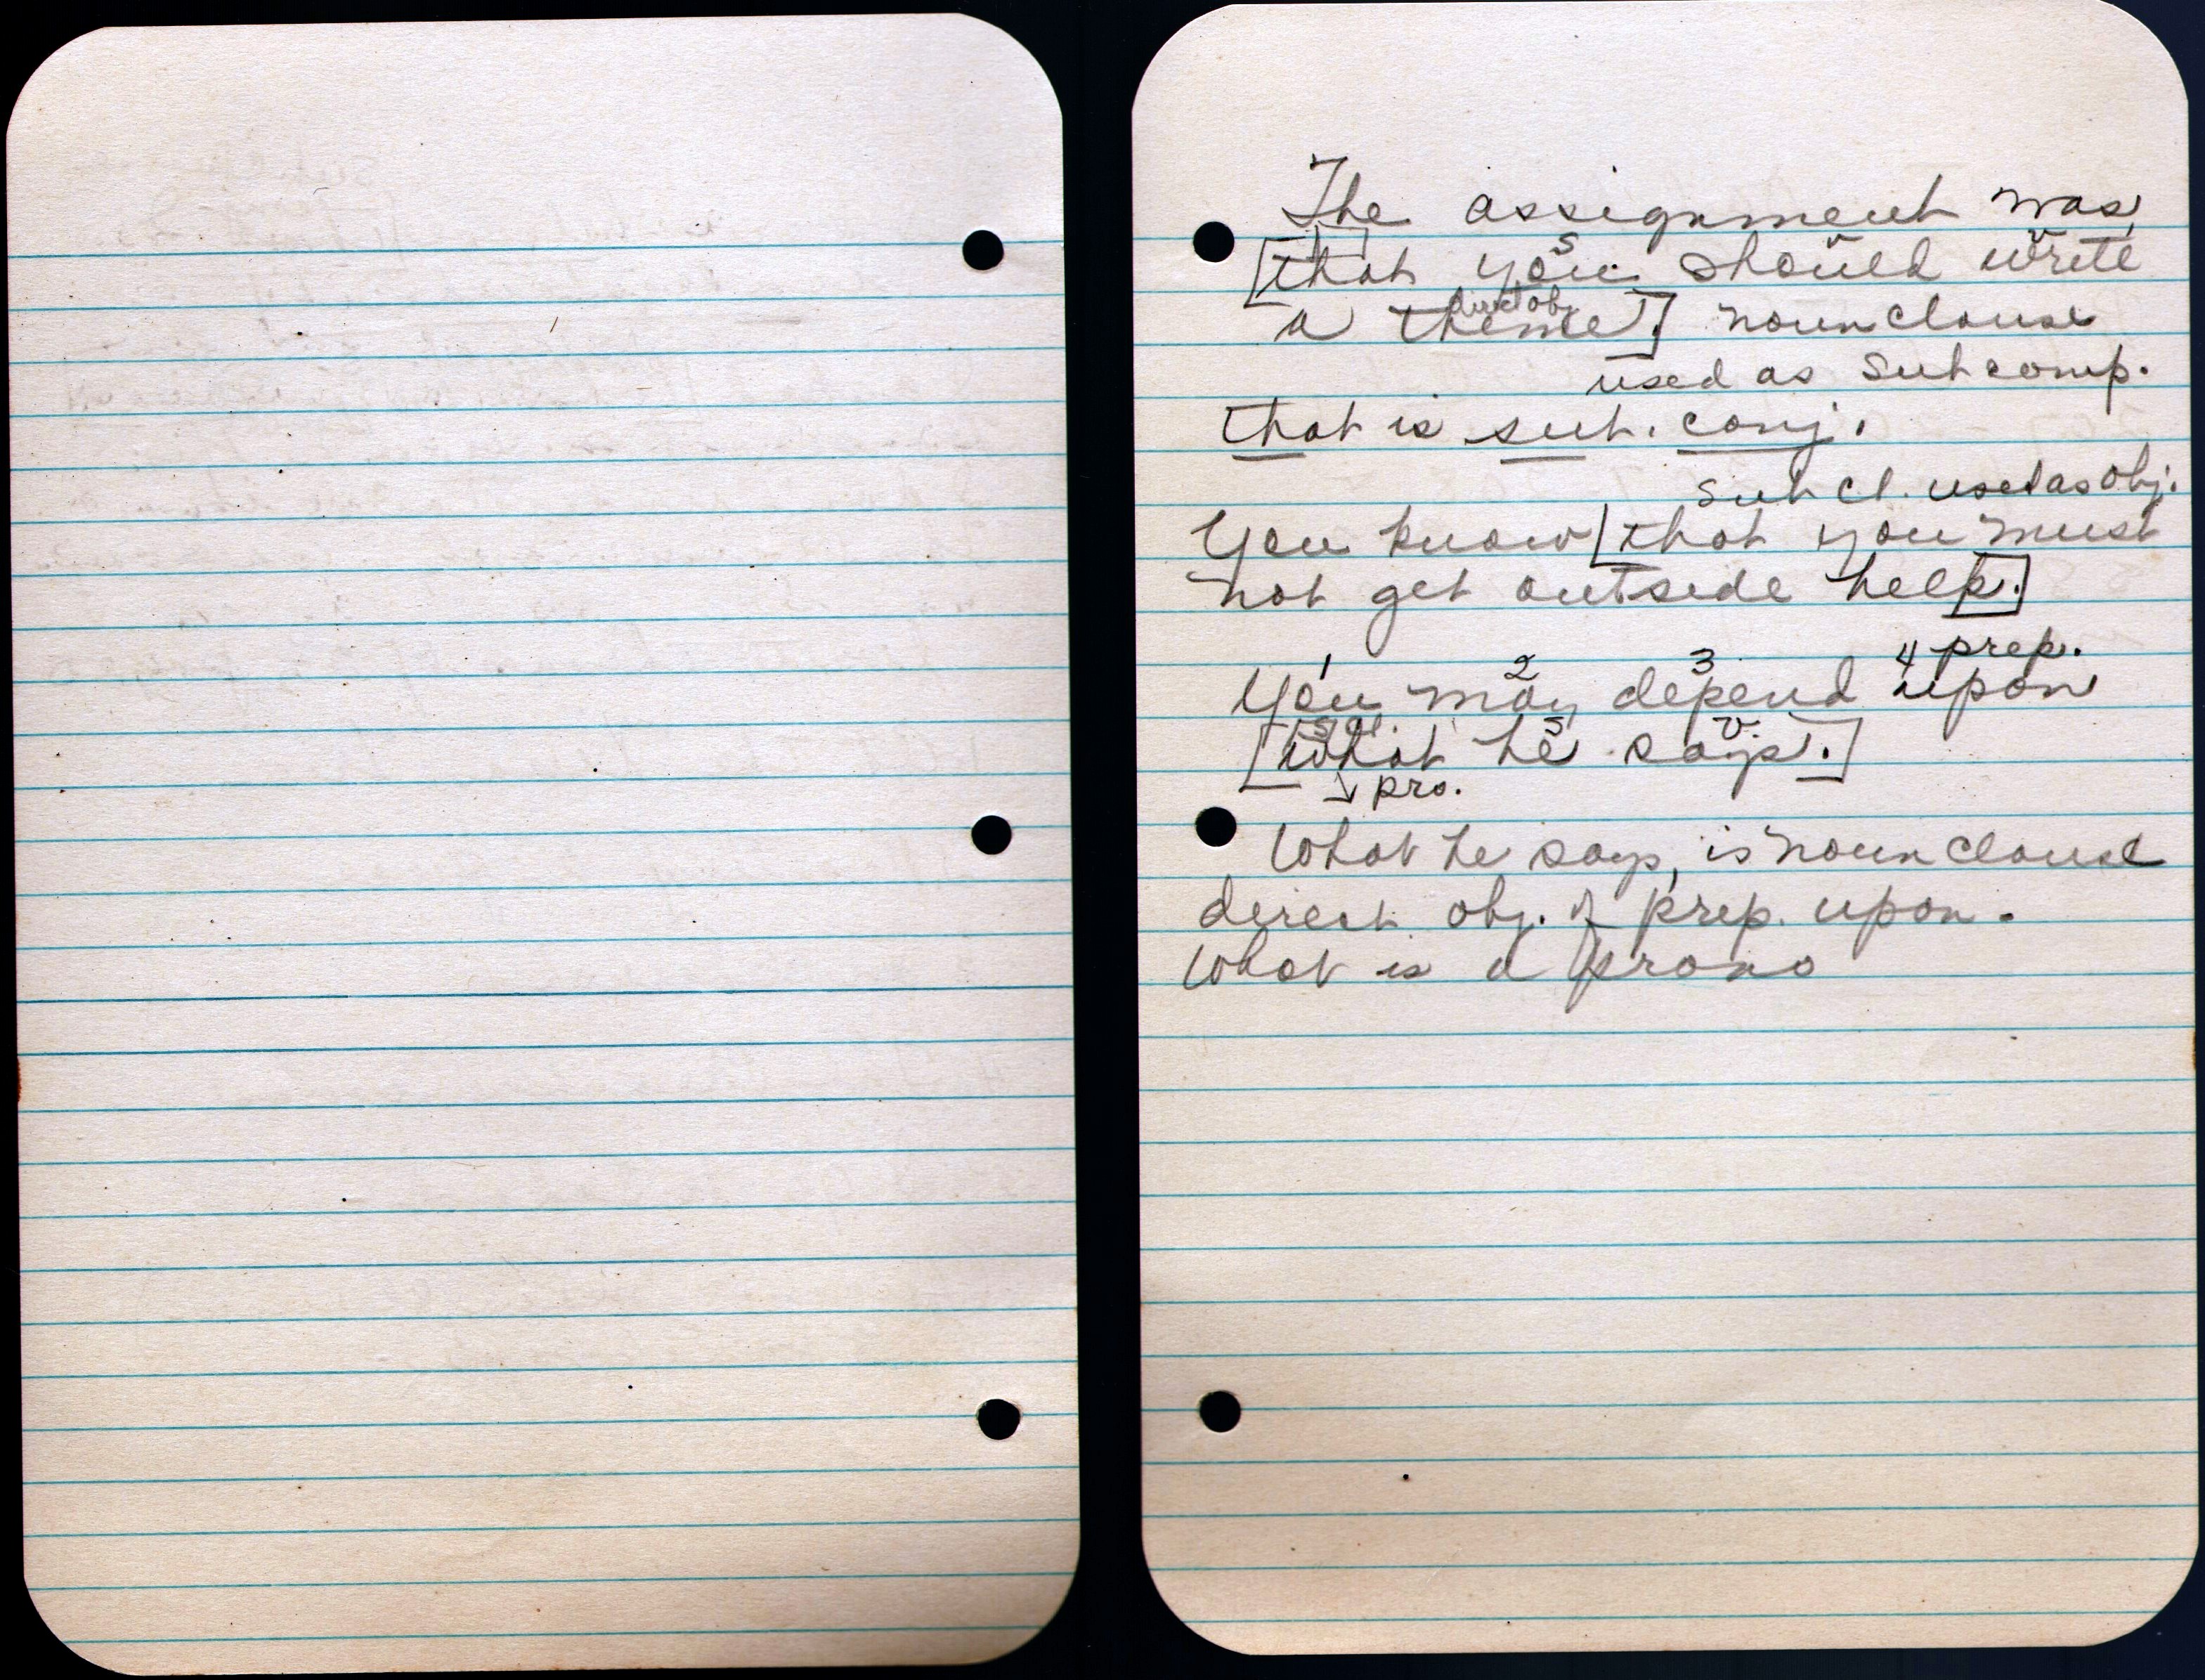 The assignment was,
[that you should write
s v v
a theme.] noun clause
direct obj.
used as Sub comp.
that is sub. conj.
Sub cl. used as obj.
You know [that you must
not get outside help.]
1 2 3 4 prep.
You may depend upon
s v.
[what he says.]
↘ pro.
What he says, is noun clause
direct obj. of prep. upon.
What is a prono